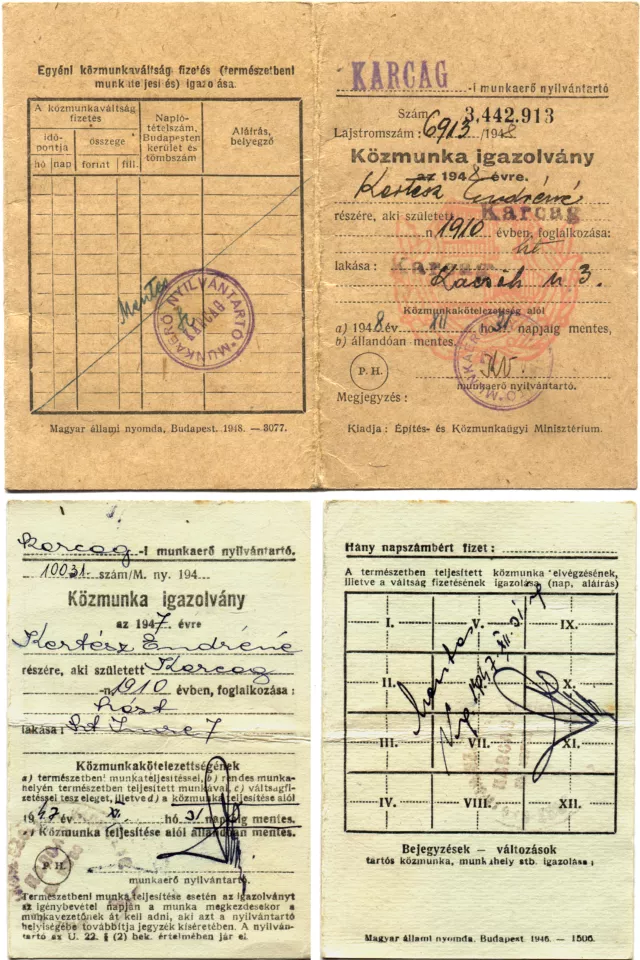 Egyéni közmunkaváltság fizetés (természetbeni
munkateljesítés) igazolása.
A közmunkaváltság
fizetés
Napló-
tételszám,
Budapesten
kerület és
tömbszám
Aláírás,
bélyegző
idő-
pontja
összege
hó nap forint fill.
Mentes
MUNKAERŐ NYILVÁNTARTÓ
KARCAG
Magyar állami nyomda, Budapest. 1948. — 3077.
KARCAG -i munkaerő nyilvántartó
Szám 3,442.913
Lajstromszám: 6913/1948
Közmunka igazolvány
az 1948 évre.
Kertész Endréné
részére, aki született Karcag
-n 1910 évben, foglalkozása:
lakása: Karcag
Kacsóh u 3.
Közmunkakötelezettség alól
a) 1948 év XII hó 31 napjáig mentes,
b) állandóan mentes.
P. H.
munkaerő nyilvántartó.
Megjegyzés:
Kiadja: Építés- és Közmunkaügyi Minisztérium.
Karcag -i munkaerő nyilvántartó.
10031. szám/M. ny. 194
Közmunka igazolvány
az 1947 évre
Kertész Endréné
részére, aki született Karcag
-n 1910 évben, foglalkozása:
lakása: Szt Imre 7
Közmunkakötelezettségének
a) természetbeni munkateljesítéssel, b) rendes munka-
helyén természetben teljesített munkával, c) váltságfi-
zetéssel tesz eleget, illetve d) a közmunka teljesítése alól
1947 év hó 31 napjáig mentes.
e) Közmunka teljesítése alól állandóan mentes.
P. H.
munkaerő nyilvántartó.
Természetbeni munka teljesítése esetén az igazolványt
az igénybevétel napján a munka megkezdésekor a
munkavezetőnek át kell adni, aki azt a nyilvántartó
helyiségébe továbbítja jegyzék kíséretében. A nyilván-
tartó az U. 22. § (2) bek. értelmében jár el.
Hány napszámbért fizet:
A természetben teljesített közmunka elvégzésének,
illetve a váltság fizetésének igazolása (nap, aláírás)
I. V. IX.
II. X.
III. VII. XI.
IV. VIII. XII.
Mentes
1947 XII. 31-ig
Bejegyzések – változások
tartós közmunka, munkahely stb. igazolása:
Magyar állami nyomda. Budapest 1946. — 1506.